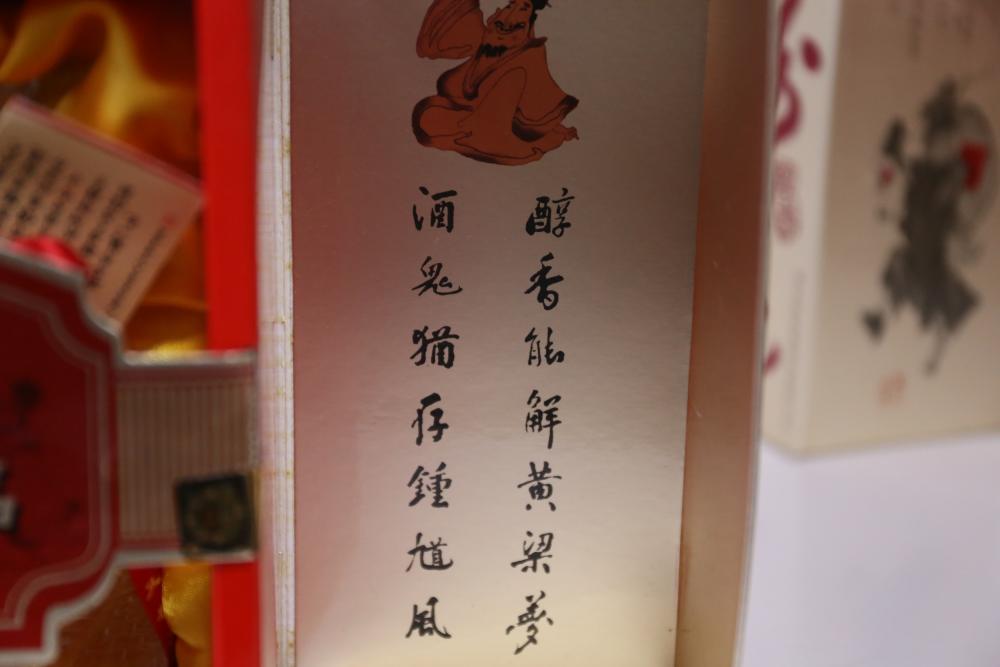 醇香能解黄梁夢
酒鬼猶存鍾馗風